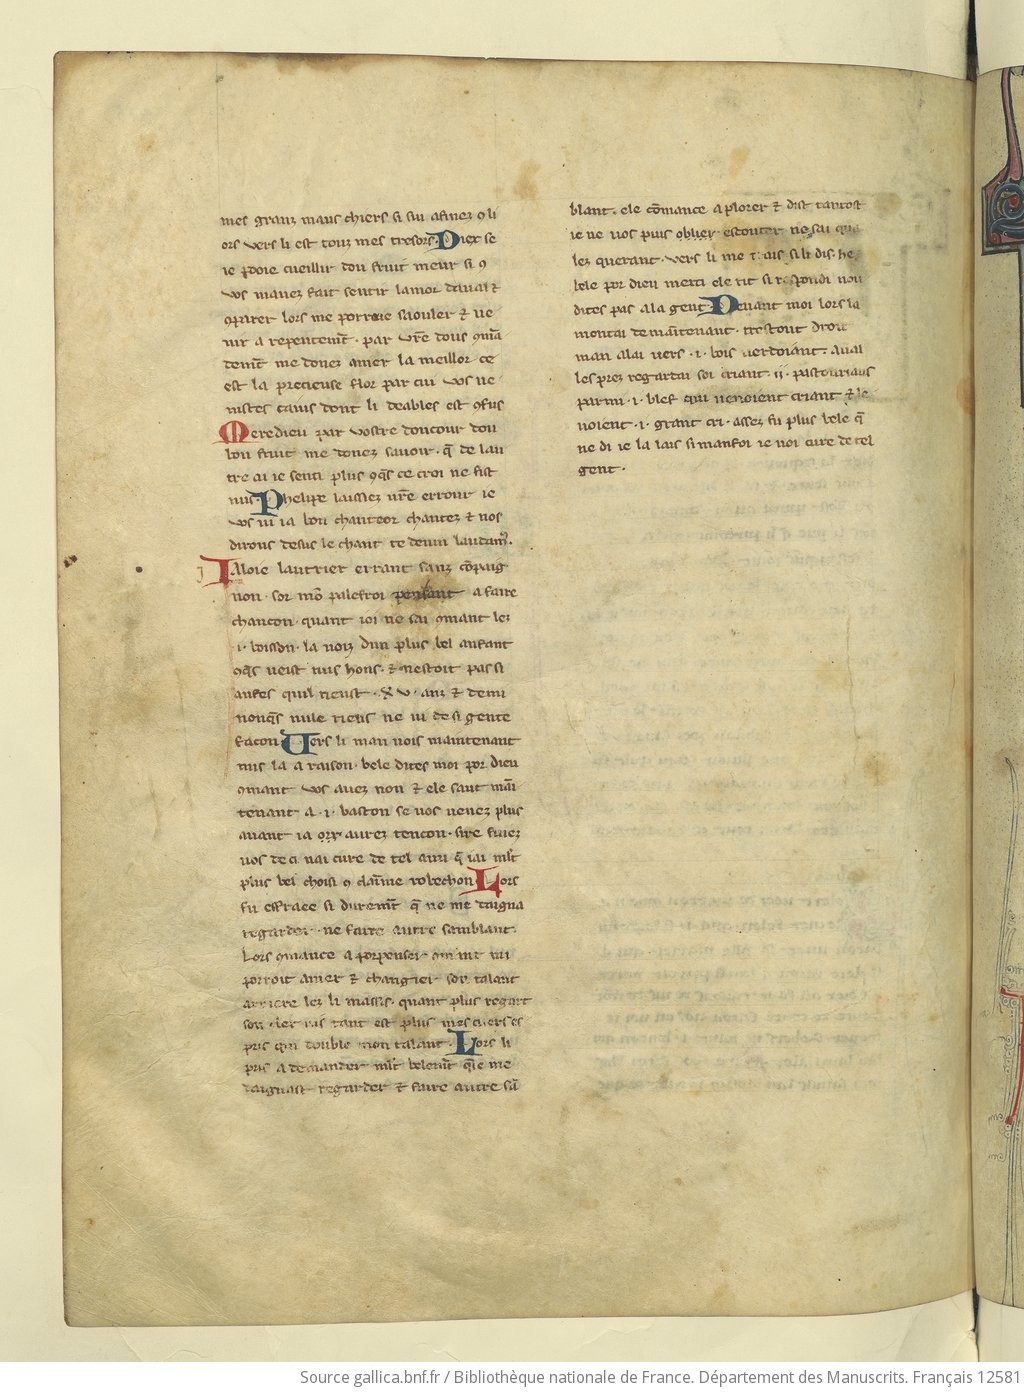 mes granz maus chiers si sui afinez q̃ li
ors vers li est touz mes tresors. Diex se
ie pooie cueillir dou fruit meur si 9
vos mauez fait sentir lamor daual ⁊
9parer lors me porroie saouler ⁊ ue
nir a repentem̃t. par vr̃e dous 9mã
dem̃t me donez amer la meillor ce
est la precieuse flor par cui vos ue
nistes caius dont li deables est 9fus
Mere dieu par vostre doucour dou
bon fruit me donez sauoir. q̃ de lau
tre ai ie senti plus 9q̃s ce croi ne fist
nus. Phelipe laissiez ur̃e errour ie
vos ui ia bon chanteor chantez ⁊ nos
dirons desus le chant te deum laudam9.
J Aloie lautrier errant sanz cõpaig
non. sor mõ palefroi pensant a faire
chancon. quant ioi ne sai 9mant lez
.i. boisson. la uoiz dun plus bel anfant
9q̃s ueist nus hons. ⁊ nestoit pas si
anfes quil neust. XV. anz ⁊ demi
nonq̃s nule riens ne ui de si gente
facon. Vers li man uois maintenant
mis la a raison. bele dites moi por dieu
9mant vos auez non ⁊ ele saut maĩ
tenant a .i. baston se uos uenez plus
auant ia orr aurez tencon. sire fuiez
uos de ci nai cure de tel ami q̃ iai ml̃t
plus bel choisi 9 claim̃e robechon. Lors
fu esfraee si durem̃t q̃ ne me daigna
regarder. ne faire autre samblant.
Lors 9mance a porpenser 9m̃nt mi
porroit amer ⁊ changier son talant
arriere lez li massis. quant plus regart
son cler uis tant est plus mes cuers es
pris qui double mon talant. Lors li
pris a demander ml̃t belem̃t q̃le me
daignast regarder ⁊ faire autre sã
blant. ele cõmance a plorer ⁊ dist tantost
ie ne uos puis oblier escouter ne sai que
lez querant. vers li me trais si li dis. he
bele por dieu merci ele rit si respondi nou
dites pas a la gent. Deuant moi lors la
montai demaĩtenant. trestout droit
man alai uers .i. bois uerdoiant. aual
les prez regardai soi criant .ii. pastouriaus
parmi .i. blef qui uenoient criant ⁊ le
uoient .i. grant cri. assez fu plus bele q̃
ne di ie la lais si manfoi ie noi cure de tel
gent.
Source gallica.bnf.fr / Bibliothèque nationale de France. Département des Manuscrits. Français 12581